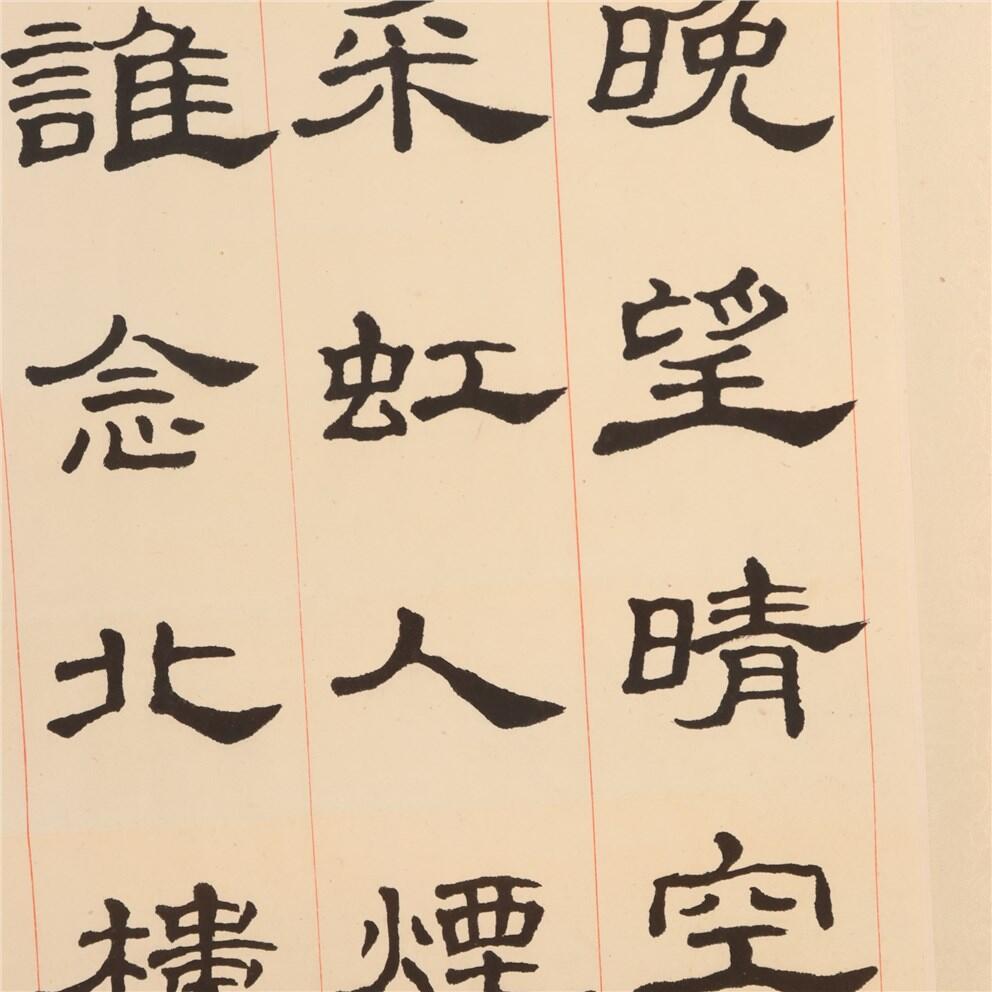 晚望晴空
采虹人煙
誰念北樓